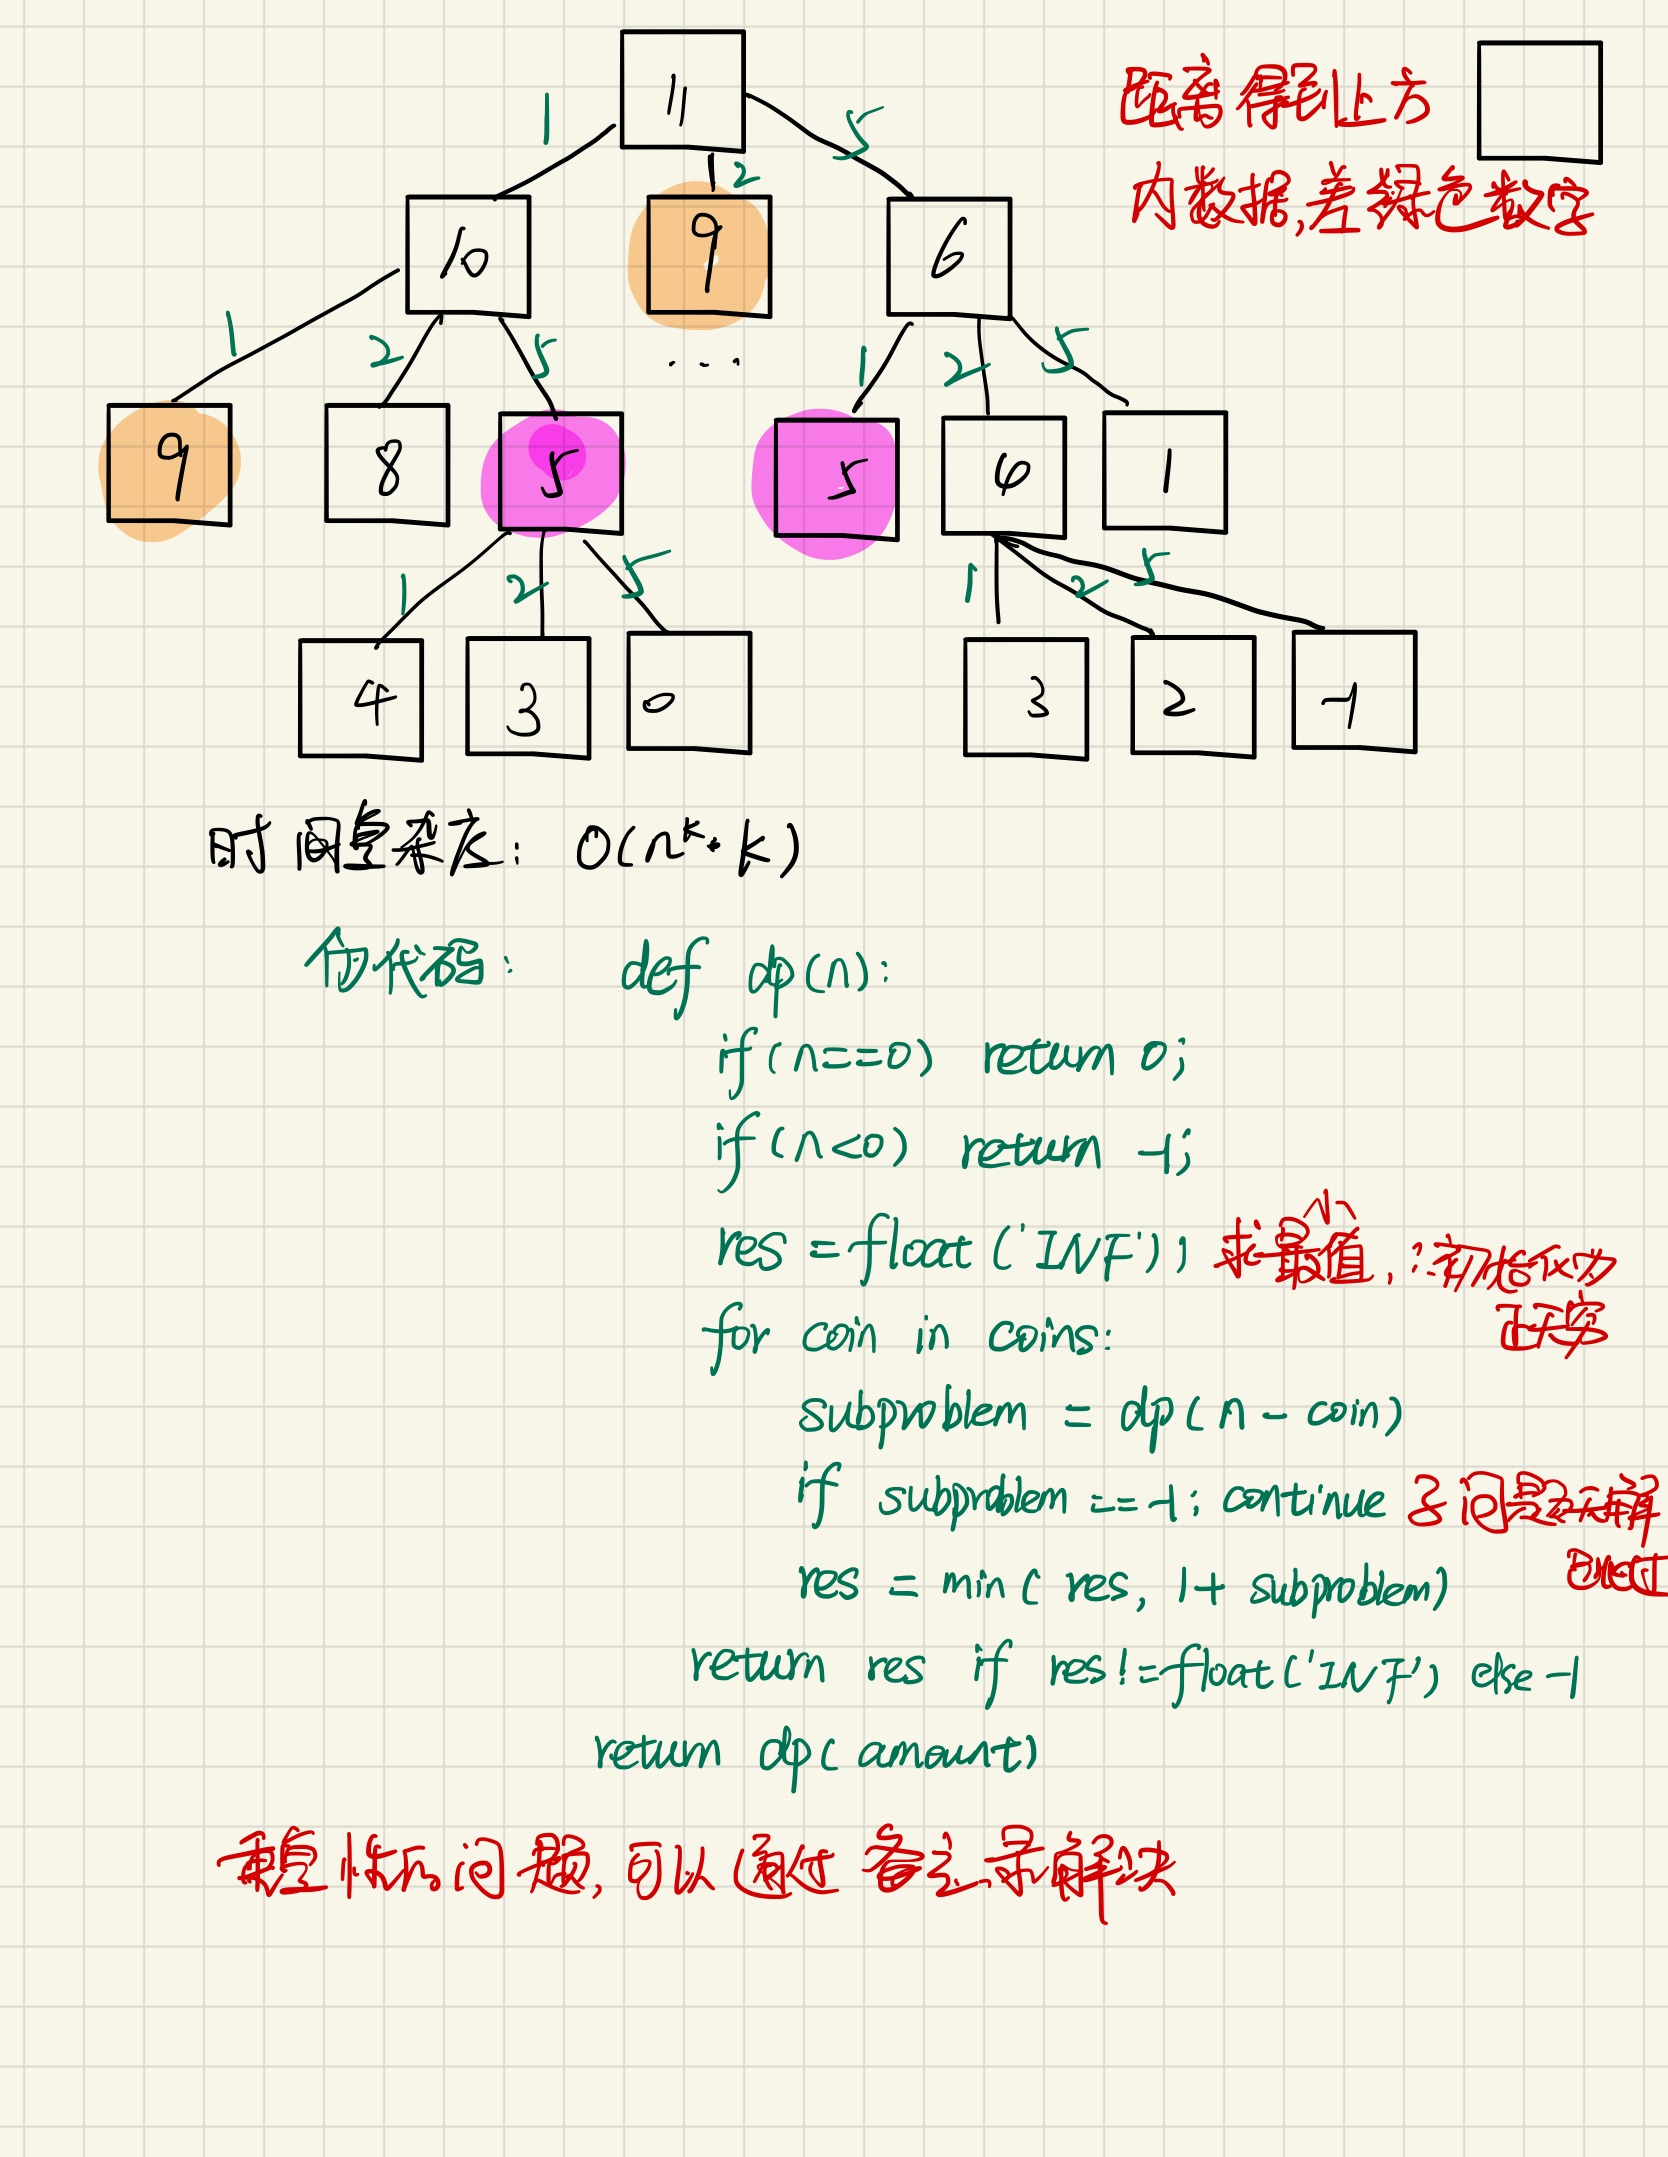 11
距离得到上方
内数据,差绿色数字
1 2 5
10 9 6
1 2 5 ... 1 2 5
9 8 5 5 4 1
1 2 5 1 2 5
4 3 0 3 2 -1
时间复杂度: O(n^k * k)
伪代码: def dp(n):
if(n==0) return 0;
if(n<0) return -1;
res = float('INF')) 求最小值, ∴初始化为
正无穷
for coin in coins:
subproblem = dp(n - coin)
if subproblem == -1: continue 子问题无解
res = min(res, 1+ subproblem)
return res if res!=float('INF') else -1
return dp(amount)
重复性的问题,可以通过备忘录解决